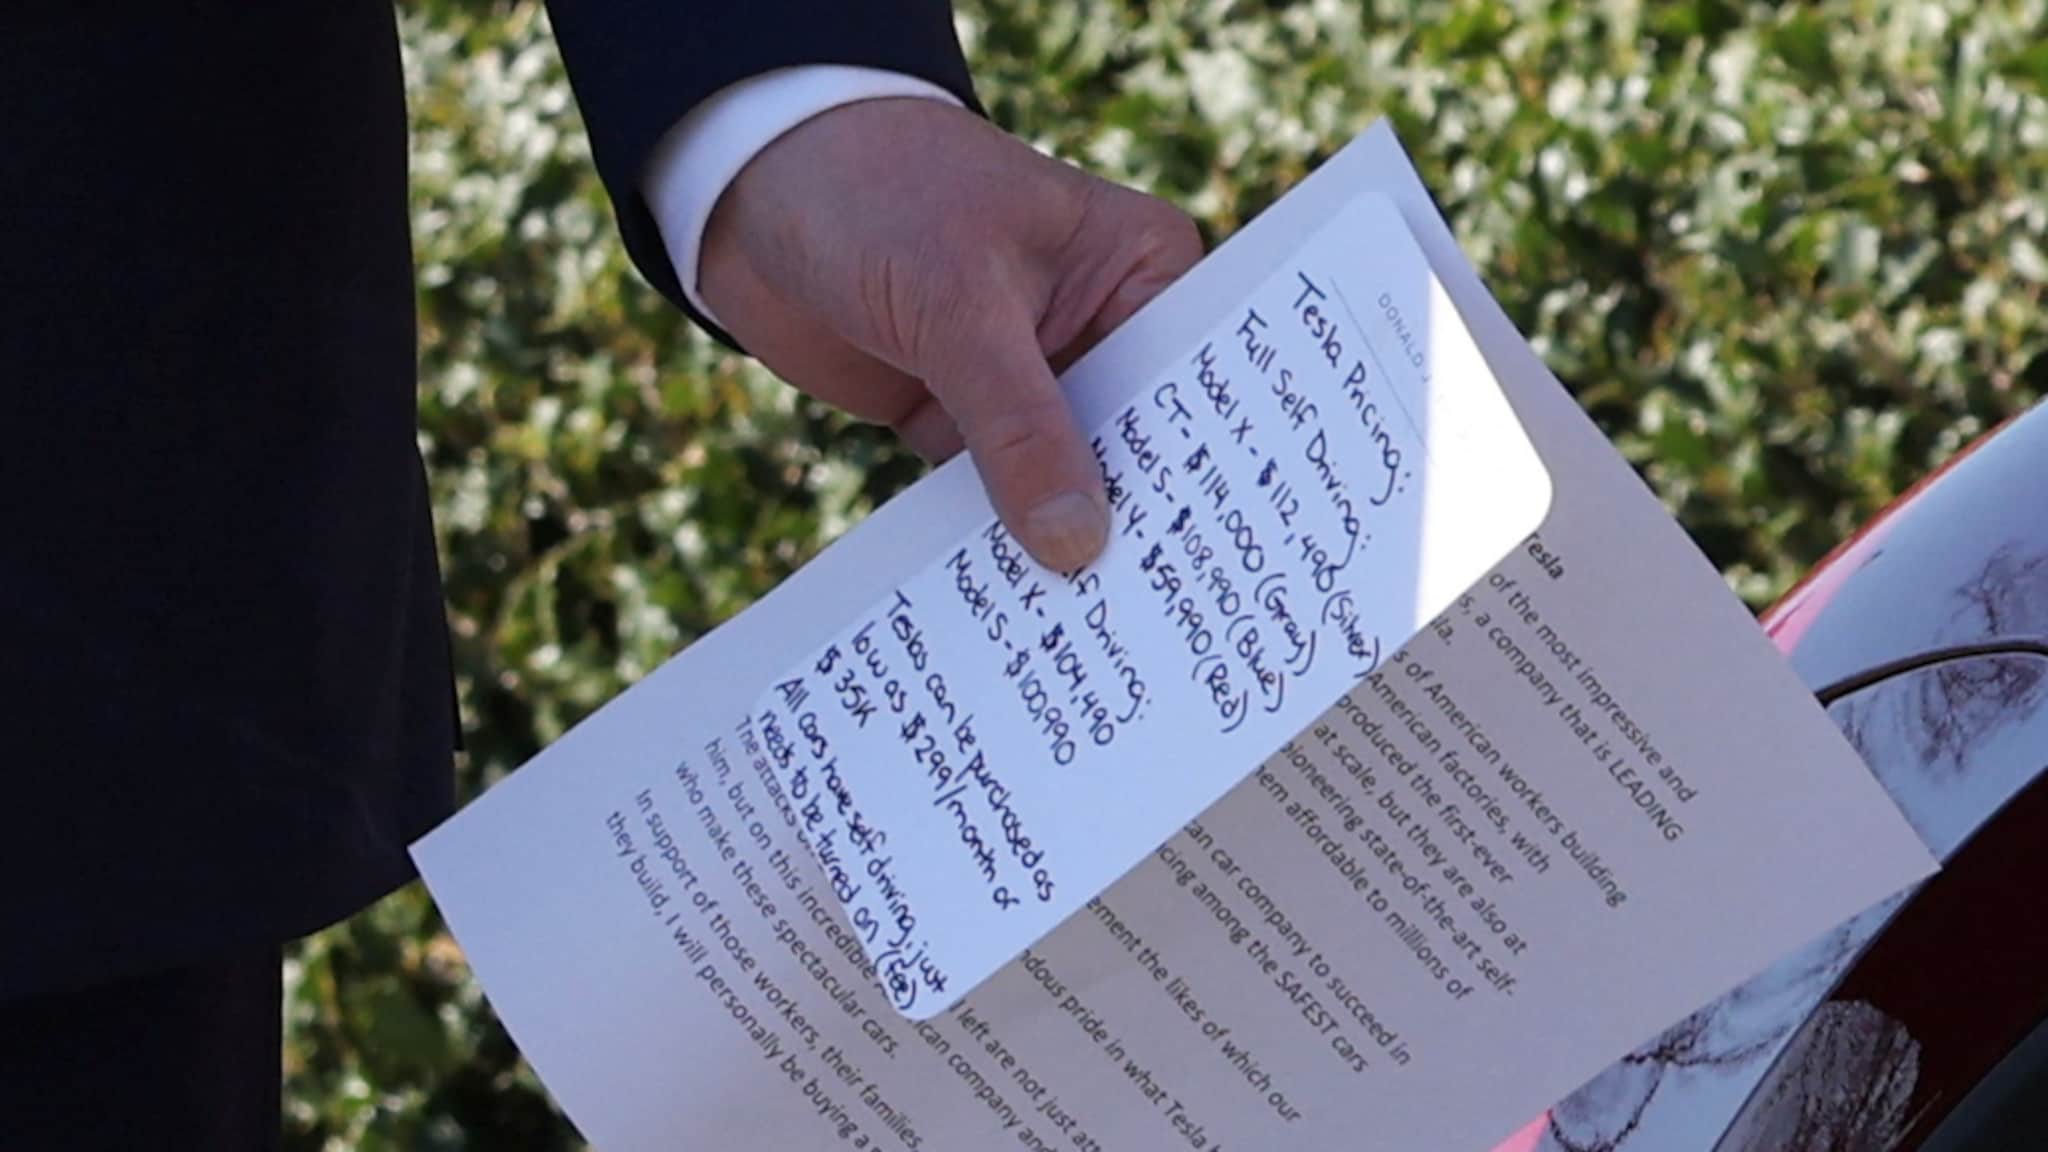 DONALD J
Tesla Pricing:
Full Self Driving:
Model X - $112,490 (Silver)
CT - $114,000 (Gray)
Model S - $108,990 (Blue)
Model Y - $59,990 (Red)
Driving:
Model X - $104,490
Model S - $100,990
Teslas can be purchased as
low as $299/month or
$35K
All cars have self driving, just
needs to be turned on (fee)
Tesla
of the most impressive and
a company that is LEADING
of American workers building
American factories, with
produced the first-ever
at scale, but they are also at
state-of-the-art self-
affordable to millions of
car company to succeed in
among the SAFEST cars
the likes of which our
pride in what Tesla
The attacks
left are not just
him, but on this incredible
company and
who make these spectacular cars.
In support of those workers, their families,
they build, I will personally be buying a